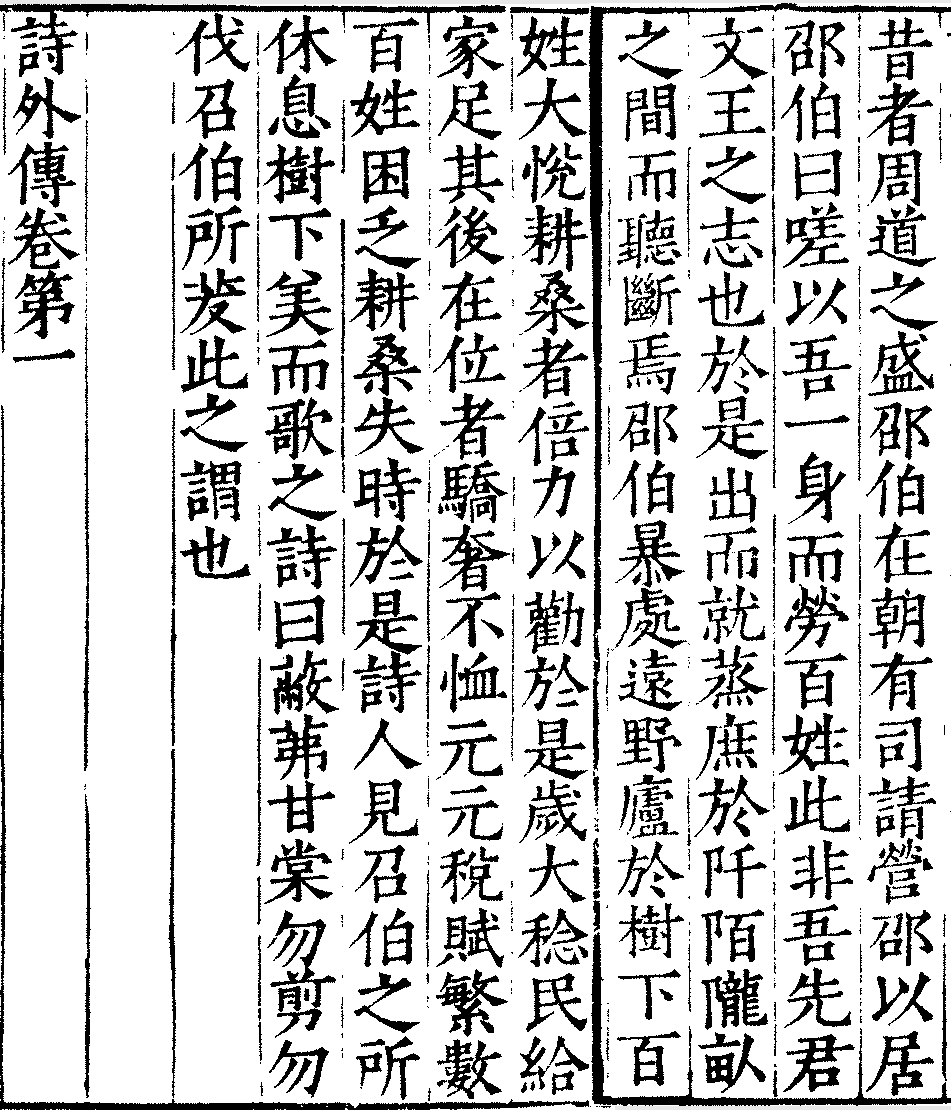 昔者周道之盛邵伯在朝有司請營邵以居
邵伯曰嗟以吾一身而勞百姓此非吾先君
文王之志也於是出而就蒸庶於阡陌隴畝
之間而聽斷焉邵伯暴處遠野廬於樹下百
姓大悅耕桑者倍力以勸於是歲大稔民給
家足其後在位者驕奢不恤元元稅賦繁數
百姓困乏耕桑失時於是詩人見召伯之所
休息樹下美而歌之詩曰蔽茀甘棠勿剪勿
伐召伯所茇此之謂也
詩外傳卷第一